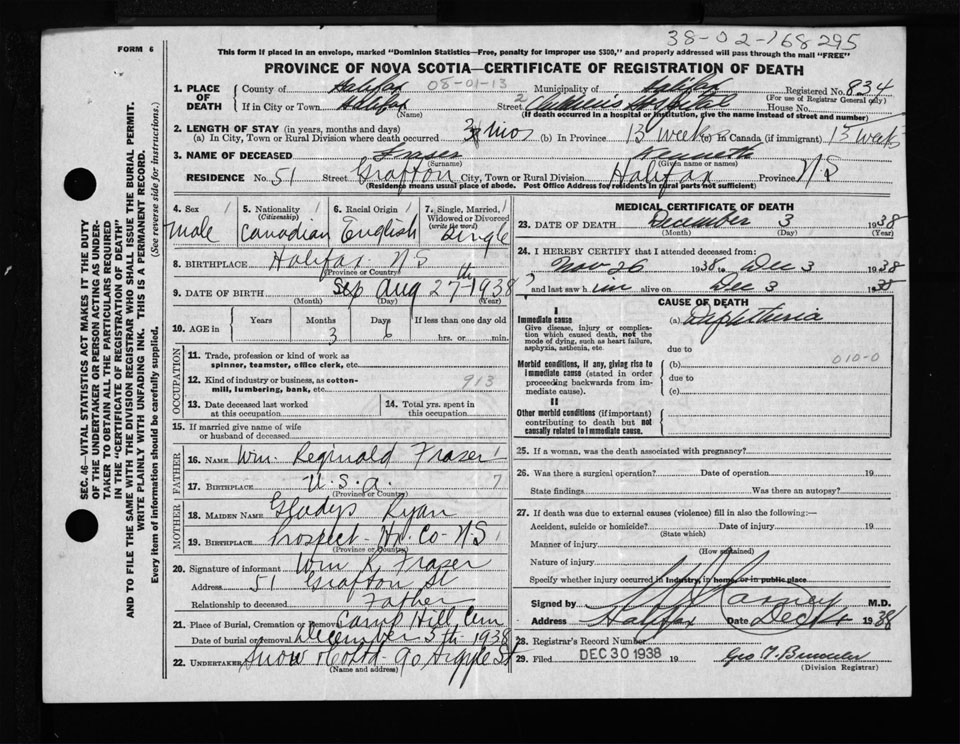 38-02-168295
FORM 6
This form if placed in an envelope, marked "Dominion Statistics—Free, penalty for improper use $300," and properly addressed will pass through the mail "FREE"
PROVINCE OF NOVA SCOTIA—CERTIFICATE OF REGISTRATION OF DEATH
SEC. 46—VITAL STATISTICS ACT MAKES IT THE DUTY
OF THE UNDERTAKER OR PERSON ACTING AS UNDER-
TAKER TO OBTAIN ALL THE PARTICULARS REQUIRED
IN THE "CERTIFICATE OF REGISTRATION OF DEATH"
AND TO FILE THE SAME WITH THE DIVISION REGISTRAR WHO SHALL ISSUE THE BURIAL PERMIT.
WRITE PLAINLY WITH UNFADING INK. THIS IS A PERMANENT RECORD.
Every item of information should be carefully supplied. (See reverse side for instructions.)
1. PLACE OF DEATH County of Halifax 08-01-13 Municipality of Halifax Registered No. 834
(For use of Registrar General only)
If in City or Town Halifax Street 2 Children's Hospital House No.
(Name) (If death occurred in a hospital or institution, give the name instead of street and number)
2. LENGTH OF STAY (in years, months and days)
(a) In City, Town or Rural Division where death occurred 3 mos (b) In Province 13 weeks (c) In Canada (if immigrant) 13 weeks
3. NAME OF DECEASED Fraser Kenneth
(Surname) (Given name or names)
RESIDENCE No. 51 Street Grafton City, Town or Rural Division Halifax Province N S
(Residence means usual place of abode. Post Office Address for residents in rural parts not sufficient)
4. Sex 1 Male
5. Nationality 1 (Citizenship) Canadian
6. Racial Origin 1 English
7. Single, Married, Widowed or Divorced 1 (write the word) Single
8. BIRTHPLACE Halifax N S
(Province or Country)
9. DATE OF BIRTH Sep Aug 27th 1938
(Month) (Day) (Year)
10. AGE in Years Months 3 Days 6 If less than one day old
hrs. or min.
OCCUPATION
11. Trade, profession or kind of work as
spinner, teamster, office clerk, etc.
12. Kind of industry or business, as cotton-
mill, lumbering, bank, etc. 913
13. Date deceased last worked
at this occupation
14. Total yrs. spent in
this occupation
15. If married give name of wife
or husband of deceased
FATHER
16. NAME Wm. Reginald Fraser 1
17. BIRTHPLACE U.S.A. 7
(Province or Country)
MOTHER
18. MAIDEN NAME Gladys Ryan
19. BIRTHPLACE Prospect - Hx. Co - N S 1
(Province or Country)
20. Signature of informant Wm R Fraser
Address 51 Grafton St
Relationship to deceased Father
21. Place of Burial, Cremation or Removal Camp Hill Cem
Date of burial or removal December 5th 1938
22. UNDERTAKER Snow & Co Ltd 90 Argyle St
(Name and address)
MEDICAL CERTIFICATE OF DEATH
23. DATE OF DEATH December 3 1938
(Month) (Day) (Year)
24. I HEREBY CERTIFY that I attended deceased from:
Nov 26 1938 to Dec 3 1938
and last saw h im alive on Dec 3 1938
CAUSE OF DEATH
I
Immediate cause (a) Diphtheria
Give disease, injury or complica-
tion which caused death, not the
mode of dying, such as heart failure,
asphyxia, asthenia, etc.
due to
010-0
Morbid conditions, if any, giving rise to (b)
immediate cause (stated in order
proceeding backwards from im-
mediate cause).
due to
(c)
II
Other morbid conditions (if important)
contributing to death but not
causally related to immediate cause.
25. If a woman, was the death associated with pregnancy?
26. Was there a surgical operation? Date of operation 19
State findings Was there an autopsy?
27. If death was due to external causes (violence) fill in also the following:—
Accident, suicide or homicide? Date of injury 19
(State which)
Manner of injury
(How sustained)
Nature of injury
Specify whether injury occurred in industry, in home, or in public place
Signed by M.D.
Address Halifax Date Dec 4 1938
28. Registrar's Record Number
29. Filed DEC 30 1938 19
(Division Registrar)